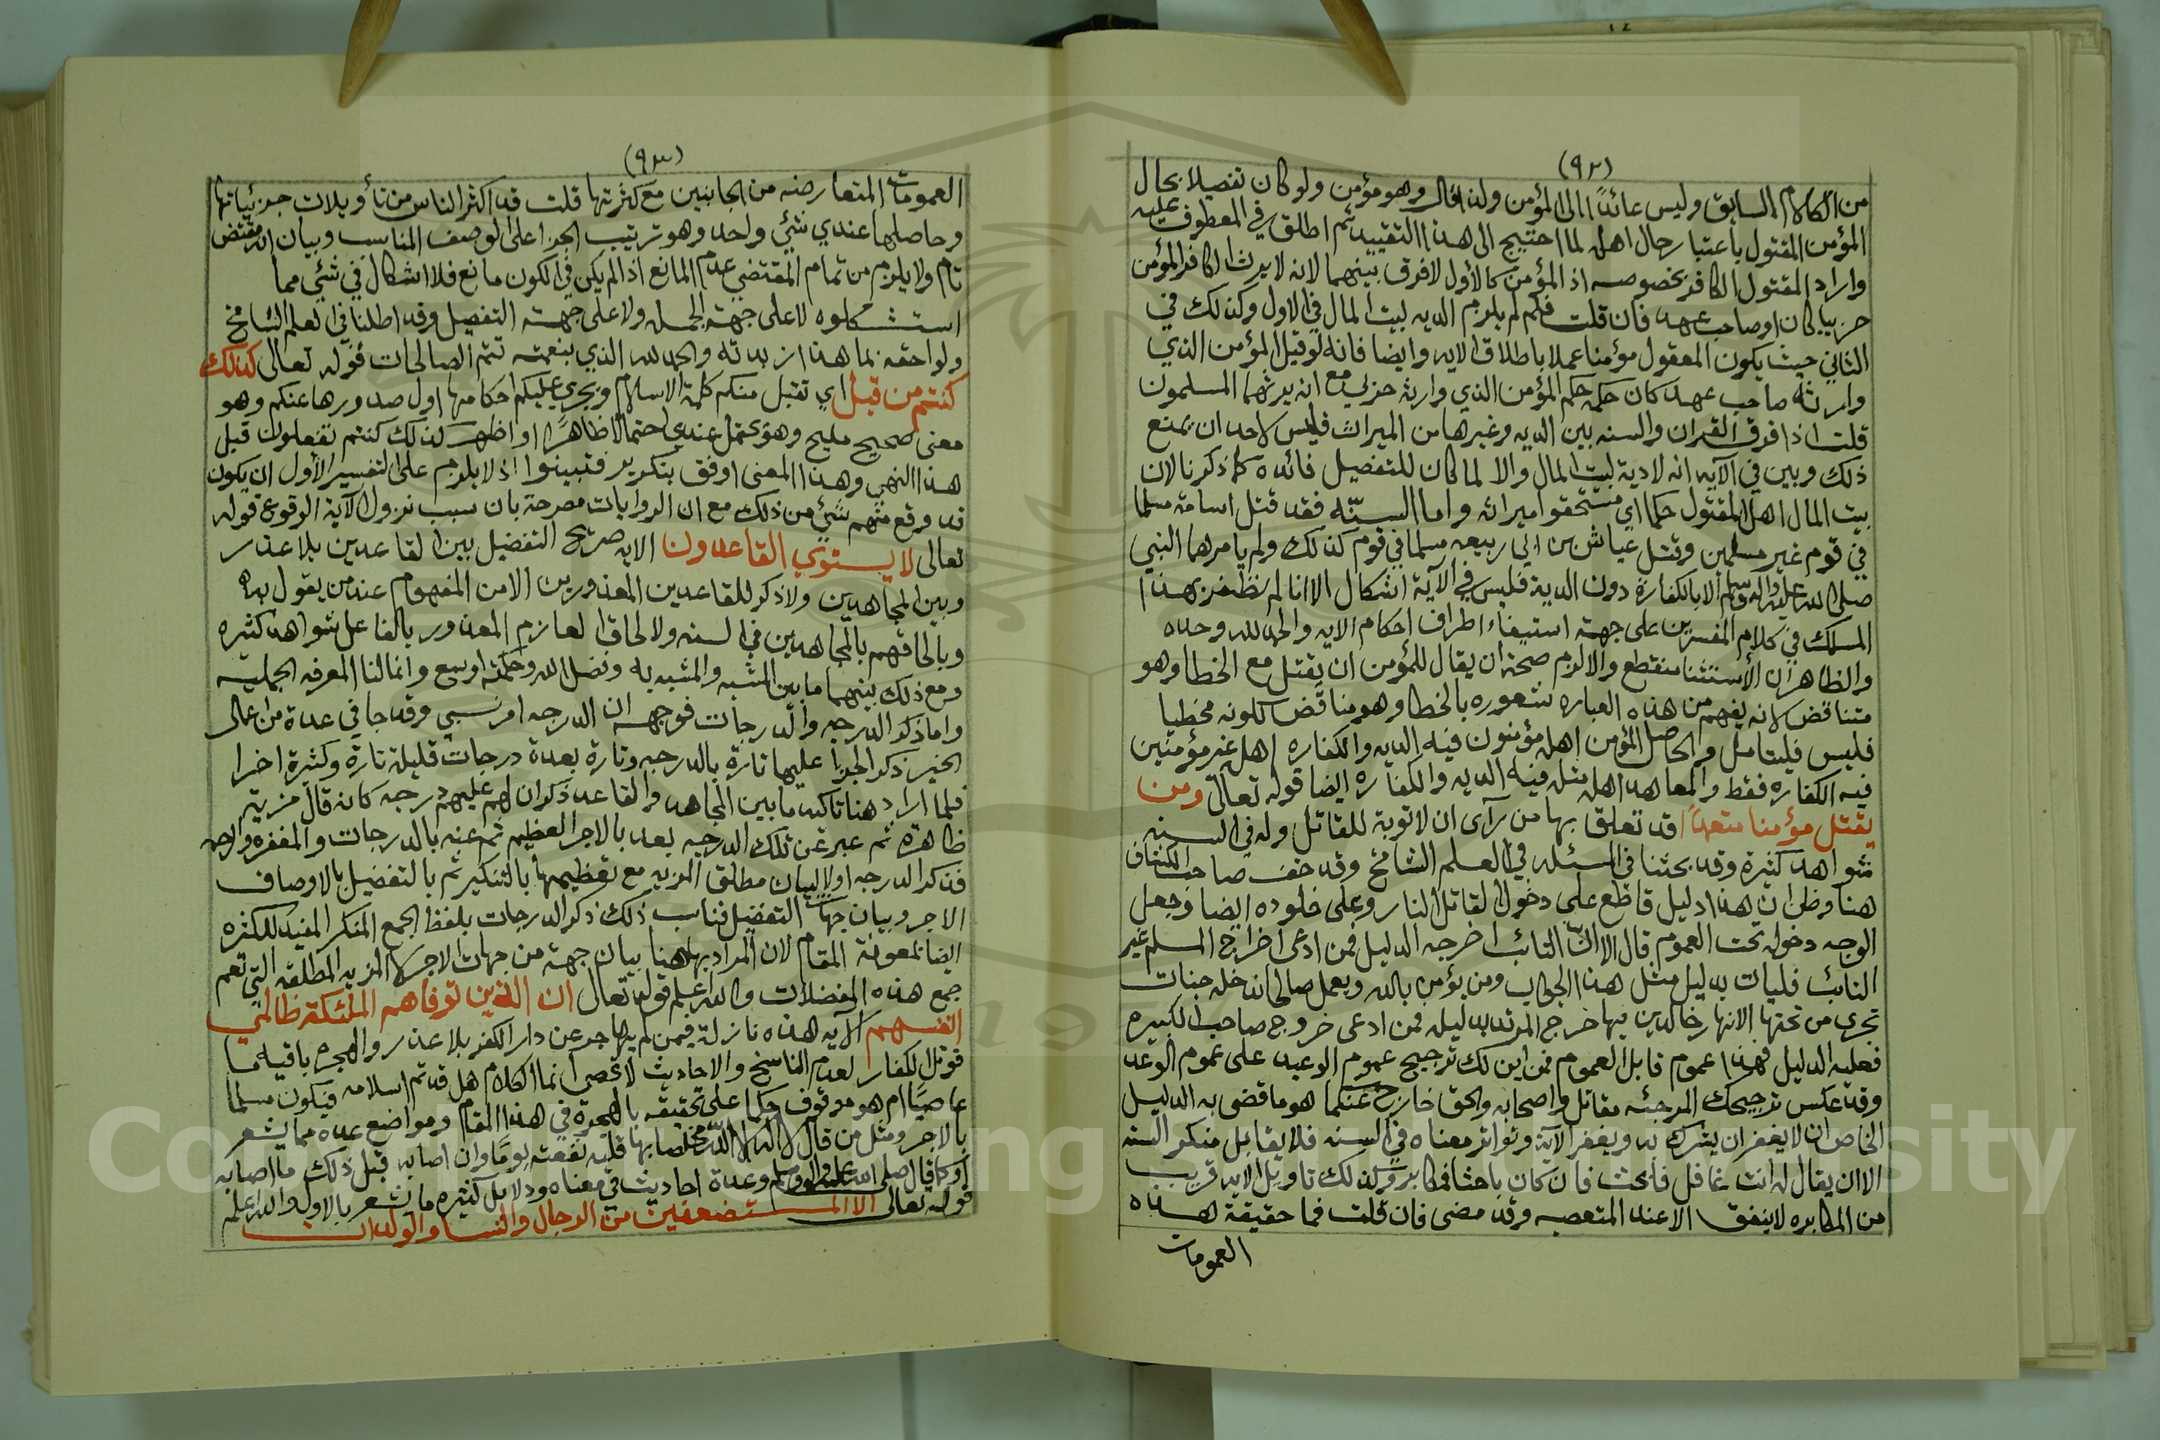 (٩٢)
من الكلام السابق وليس عائدًا الى المؤمن ولذا قال وهو مؤمن ولو كان تفصيلا بحال
المؤمن المقتول باعتبار رجال اهله لما احتيج الى هذا التقييد ثم اطلق في المعطوف عليه
واراد المقتول الكافر بخصوصه اذ المؤمن كالأول لا فرق بينهما لانه لا يرث الكافر المؤمن
حربيا كان او صاحب عهد فان قلت فلم لم يلزم الديه لبيت المال في الاول وكذلك في
الثاني حيث يكون المعقول مؤمنا عملا باطلاق الايه وايضا فانه لو قيل المؤمن الذي
وارثه صاحب عهد كان حكمه حكم المؤمن الذي وارثه حربي مع انه يرثهما المسلمون
قلت اذا فرق القران والسنه بين الديه وغيرها من الميراث فليس لاحد ان يمنع
ذلك وبين في الآيه انه لا دية لبيت المال والا لما كان للتفصيل فائده كما ذكرنا لان
بيت المال اهل المقتول حكما اي مستحقوا ميراثه واما السنّه فقد قتل اسامة مسلما
في قوم غير مسلمين وقتل عياش بن ابي ربيعه مسلما في قوم كذلك ولم يامرهما النبي
صلى الله عليه واله وسلم الا بالكفارة دون الدية فليس في الآية اشكال الا انا لم نظفر بهذا
المسلك في كلام المفسرين على جهة استيفاء اطراف احكام الايه والحمد لله وحده
والظاهر ان الأستثنا منقطع والا لزم صحة ان يقال للمؤمن ان يقتل مع الخطا وهو
متناقض لانه يفهم من هذه العباره شعوره بالخطا وهو مناقض لكونه مخطيا
فليس فليتامل والحاصل المؤمن اهله مؤمنون فيه الديه والكفاره اهله غير مؤمنين
فيه الكفاره فقط والمعاهد اهله مثله فيه الديه والكفاره ايضا قوله تعالى ومن
يقتل مؤمنا متعمدًا قد تعلق بها من رآى ان لا توبة للقاتل وله في السنه
شواهد كثيرة وقد بحثنا في المسئله في العلم الشامخ وقد خف صاحب الكشاف
هنا وظن ان هذا دليل قاطع على دخول القاتل النار وعلى خلوده ايضا وجعل
الوجه دخوله تحت العموم قال الا انّ التائب اخرجه الدليل فمن ادعى اخراج المسلم غير
التائب فليات بدليل مثل هذا الجواب ومن يؤمن بالله ويعمل صالحا ندخله جنات
تجري من تحتها الانهار خالدين فيها خرج المرتد بدليله فمن ادعى خروج صاحب الكبيره
فعليه الدليل فهذا عموم قابل العموم فمن اين لك ترجيح عموم الوعيد على عموم الوعد
وقد عكس ترجيحك المرجئه مقاتل واصحابه والحق خارج عنكما هو ما قضى به الدليل
الخاص ان لا يغفر ان يشرك به ويغفر الآية وتواتر معناه في السنه فلا يقابل منكر السنه
الا ان يقال له انت غافل فابحث فان كان باحثا فمكابر وكذلك تاويل الايه قريب
من المكابره لا ينفق الا عند المتعصبه وقد مضى فان قلت فما حقيقة هذه
العمومات
(٩٣)
العمومات المتعارضه من الجانبين مع كثرتها قلت قد اكثر الناس من تأويلات جزئياتها
وحاصلها عندي شئي واحد وهو ترتيب الجزا على الوصف المناسب وبيان انه مقتض
تام ولا يلزم من تمام المقتضي عدم المانع اذ لم يكن في الكون مانع فلا اشكال في شئي مما
استشكلوه لا على جهة الجمله ولا على جهة التفصيل وقد اطلنا في العلم الشامخ
ولواحقه بما هذا زبدته والحمد لله الذي بنعمته تتم الصالحات قوله تعالى كذلك
كنتم من قبل اي تقبل منكم كلمة الاسلام ويجري عليكم احكامها اول صدورها عنكم وهو
معنى صحيح مليح وهو يحتمل عندي احتمالا ظاهرًا او اظهر كذلك كنتم تفعلون قبل
هذا النهي وهذا المعنى اوفق بتكرير فتبينوا اذ لا يلزم على التفسير الأول ان يكون
قد وقع منهم شئي من ذلك مع ان الروايات مصرحة بان سبب نزول الآية الوقوع قوله
تعالى لا يستوي القاعدون الايه صريح التفضيل بين القاعدين بلا عذر
وبين المجاهدين ولا ذكر للقاعدين المعذورين الا من المفهوم عند من يقول به
وبالحاقهم بالمجاهدين في السنه ولا لحاق العازم المعذور بالفاعل شواهد كثيره
ومع ذلك بينهما ما بين المشبه والمشبه به وفضل الله وحكمته اوسع وانما لنا المعرفه الجمليه
واما ذكر الدرجه والدرجات فوجهه ان الدرجه امر نسبي وقد جا في عدة من اعمال
الخير ذكر الجزا عليها تارة بالدرجه وتارة بعدة درجات قليلة تارة وكثيرة اخرا
فلما اراد هنا تاكيد ما بين المجاهد والقاعد ذكر ان لهم عليهم درجه كانه قال مزية
ظاهرة ثم عبر عن تلك الدرجه بعد بالاجر العظيم ثم عنه بالدرجات والمغفره والرحمه
فذكر الدرجه اولا لبيان مطلق المزيه مع تعظيمها بالتنكير ثم بالتفضيل بالاوصاف
الاجر وبيان جهات التفضيل فناسب ذلك ذكر الدرجات بلفظ الجمع المنكر المفيد للكثره
ايضا بمعونة المقام لان المراد بها هنا بيان جهة من جهات الاجر لا المزيه المطلقه التي تعم
جمع هذه المفضلات والله اعلم قوله تعالى ان الذين توفاهم الملئكة ظالمي
انفسهم الآيه هذه نازلة فيمن لم يهاجر عن دار الكفر بلا عذر والهجره باقية ما
قوتل الكفار لعدم الناسخ والاحاديث لا تحصى انما الكلام هل قد تم اسلامه فيكون مسلما
عاصيًا ام هو موقوف حكما على تحقيقه بالهجرة في هذا المقام ومواضع عده مما يشعر
بالاجر ومثل من قال لا اله الا الله مخلصا بها قلبه نفعته يومًا وان اصابه قبل ذلك ما اصابه
او كما قال صلى الله عليه واله وسلم وعدة احاديث في معناه ودلائل كثيره ما يشعر بالاول والله اعلم
قوله تعالى الا المستضعفين من الرجال والنسا والولدان